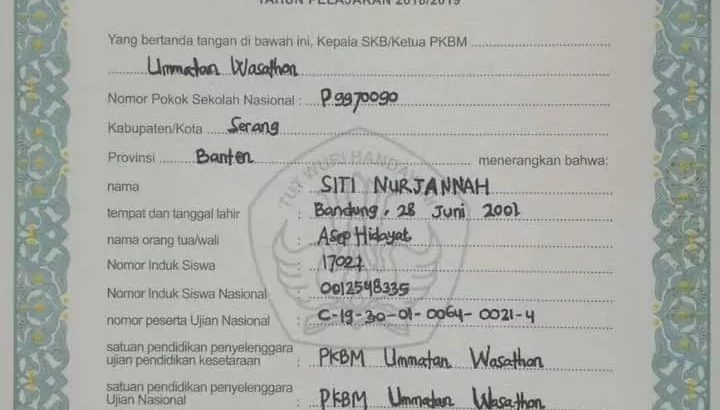 TAHUN PELAJARAN 2018/2019
Yang bertanda tangan di bawah ini, Kepala SKB/Ketua PKBM
Ummatan Wasathon
Nomor Pokok Sekolah Nasional : P9970090
Kabupaten/Kota Serang
Provinsi Banten menerangkan bahwa:
nama : SITI NURJANNAH
tempat dan tanggal lahir : Bandung, 28 Juni 2001
nama orang tua/wali : Asep Hidayat
Nomor Induk Siswa : 17021
Nomor Induk Siswa Nasional : 0012548335
nomor peserta Ujian Nasional : C-19-30-01-0064-0021-4
satuan pendidikan penyelenggara
ujian pendidikan kesetaraan : PKBM Ummatan Wasathon
satuan pendidikan penyelenggara
Ujian Nasional : PKBM Ummatan Wasathon
TUT WURI HANDAYANI